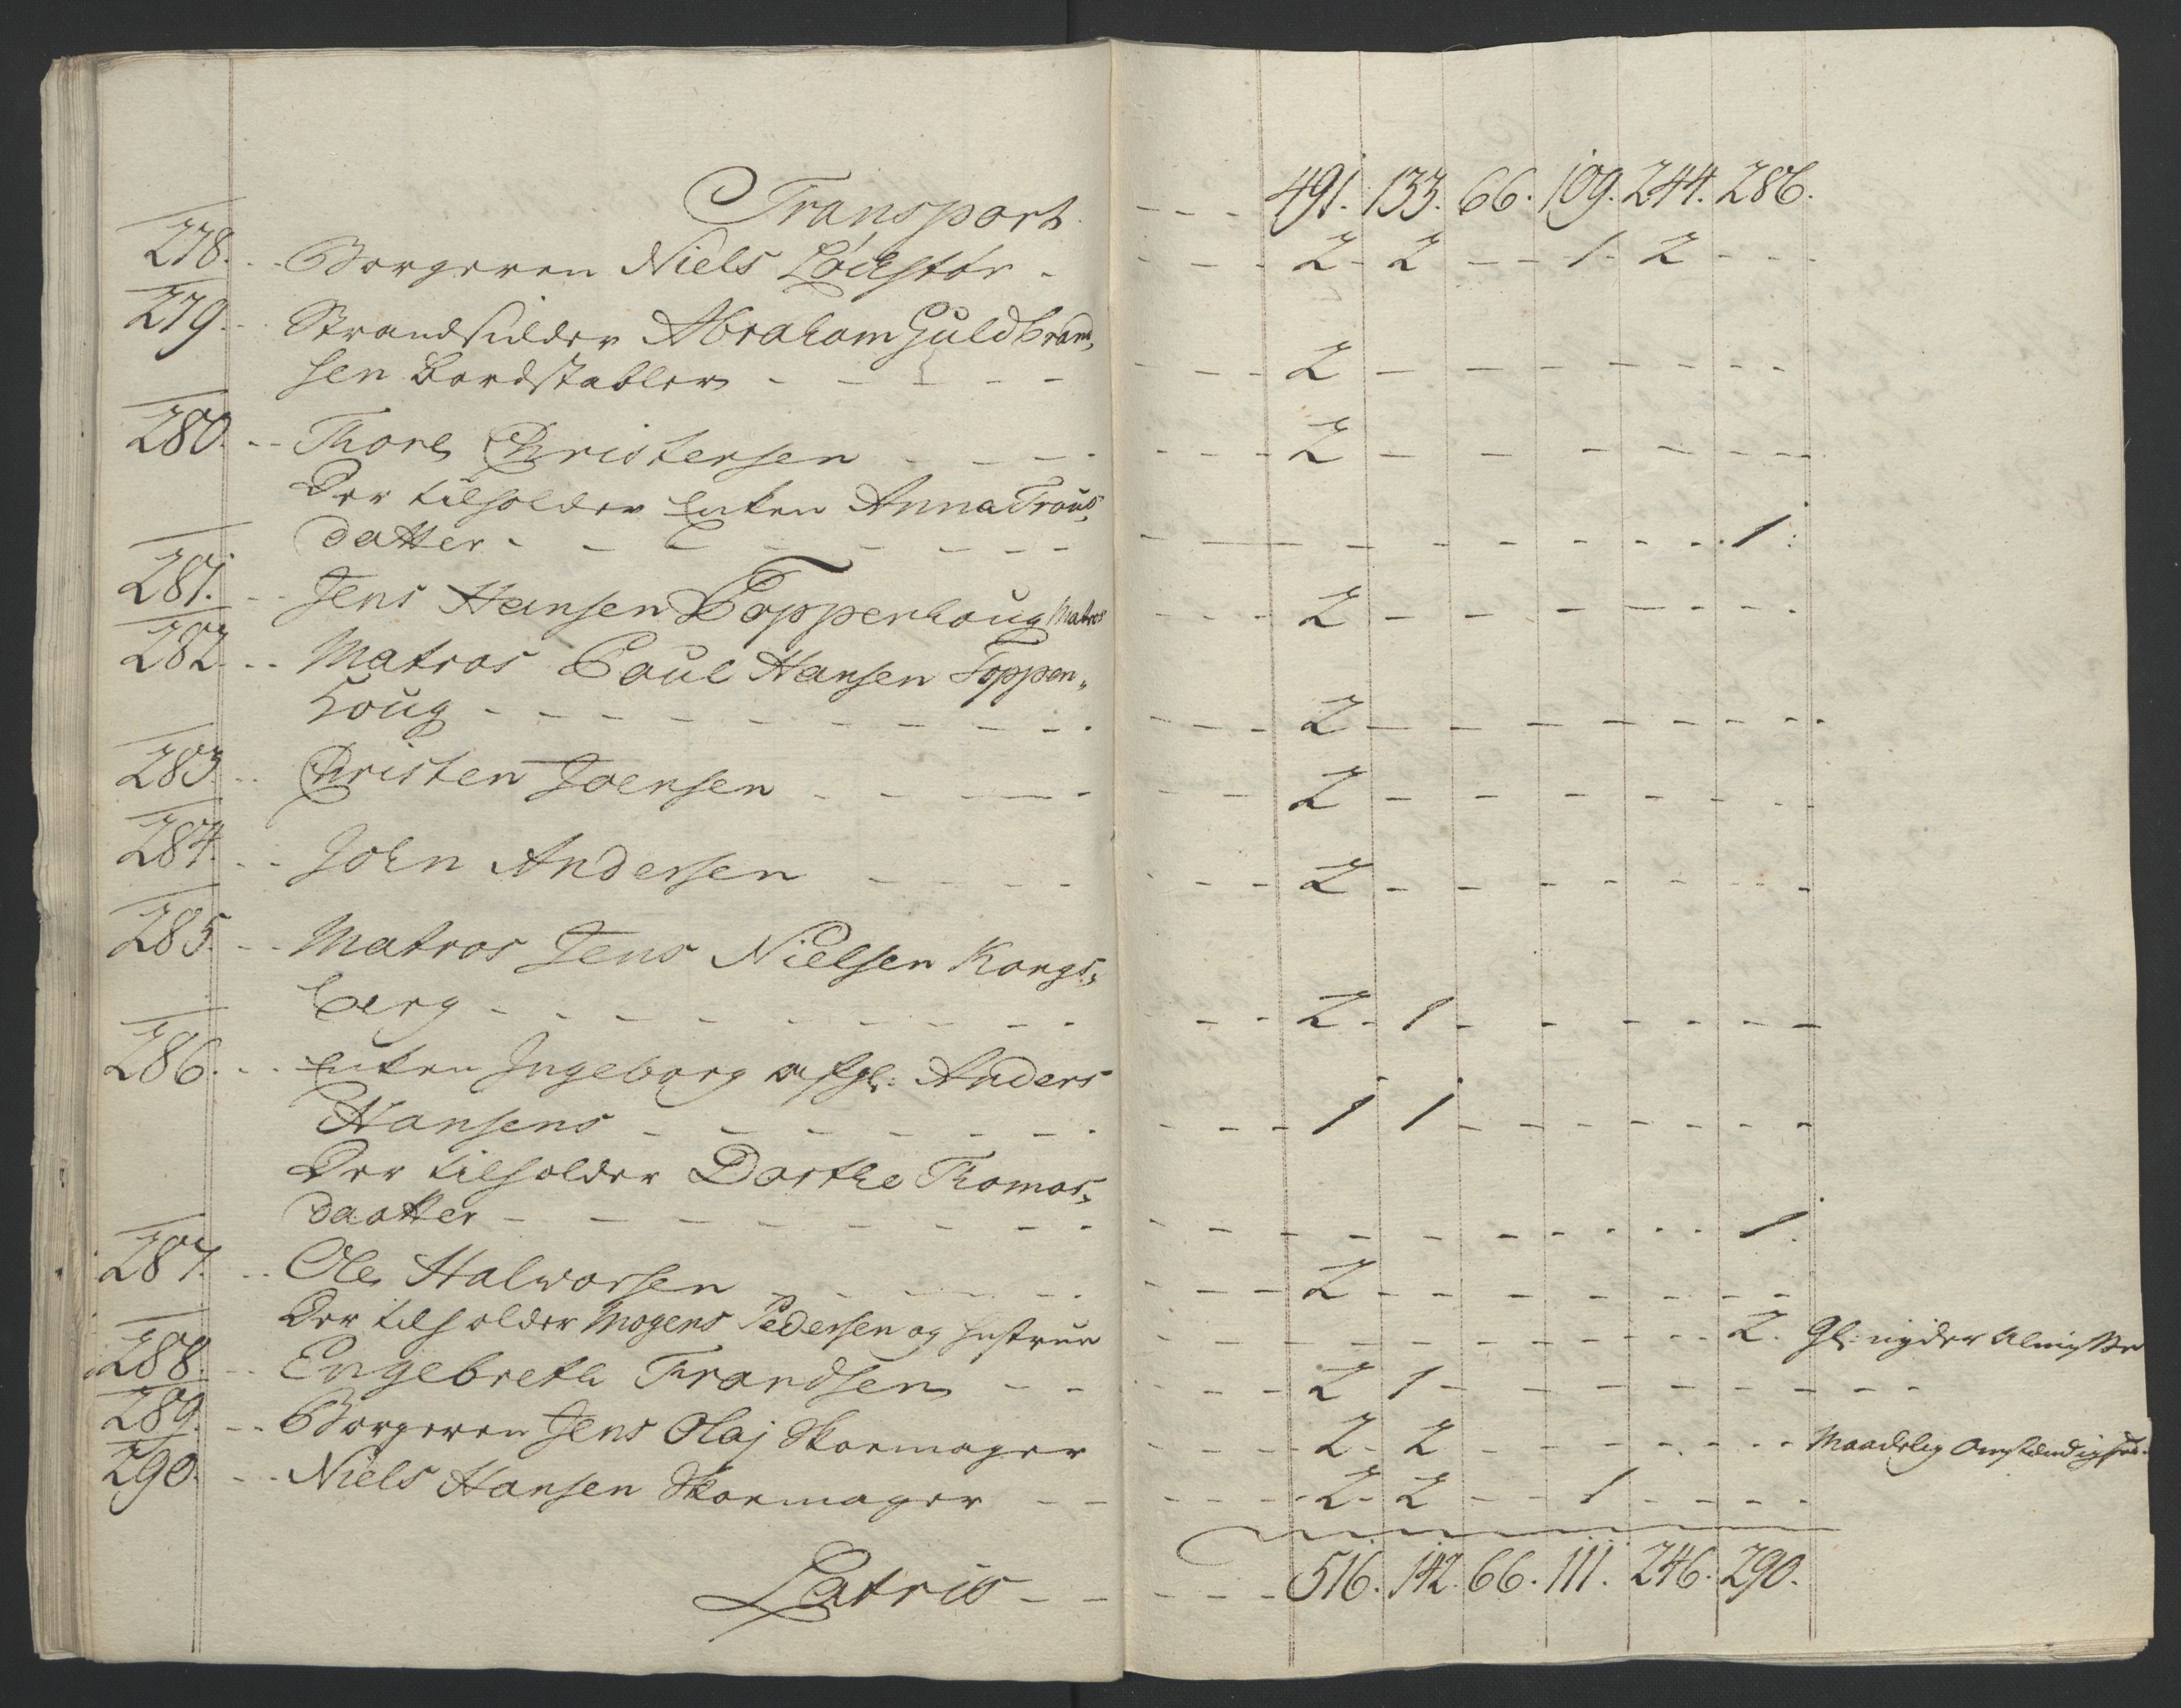 Transport - - - 491. 133. 66. 109. 244. 286.
278. - - Borgeren Niels Löchstör - - - - 2 - 2 - - 1 - 2 - - -
279. - - Strandsidder Abraham Guldbrand,
sen Bordstabler - - - - - - - - 2 - - - - - - - -
280. - - Thore Christensen - - - - - - - 2 - - - - - - -
Der tilholder Enken Anna
datter - - - - - - - - - - - - - - - - 1.
281. - - Jens Hansen Toppenhoug Matros - - - 2 - - - - - - -
282. - - Matros Poul Hansen Toppen,,
houg - - - - - - - - - - - - 2 - - - - - - - -
283. - - Christen Joensen - - - - - - 2 - - - - - - -
284. - - John Andersen - - - - - - - 2 - - - - - - -
285. - - Matros Jens Nielsen Kongs,,
berg - - - - - - - - - - - 2 - 1 - - - - - - -
286. - - Enken Ingeborg afgl: Anders
Hansens - - - - - - - - - - 1 1 - - - - - - -
Der tilholder Dorthe Thomas,,
daatter - - - - - - - - - - - - - - - - 1.
287. - - Ole Halworsen - - - - - - - 2 - - - - - - -
Der tilholder Mogens Pedersen og Hustrue - - - - - - - - - 2. Gl: nyder Almisse
288. - - Engebreth Frandsen - - - - - 2 1 - - - - - - - -
289. - - Borgeren Jens Olaj Skomager - - - 2 - 2 - - - - - - - - Maadelig Omstændighed.
290. - - Niels Hansen Skomager - - - - - 2 - 2 - - 1 - - - -
Latris - - - - - 516. 142. 66. 111. 246. 290.